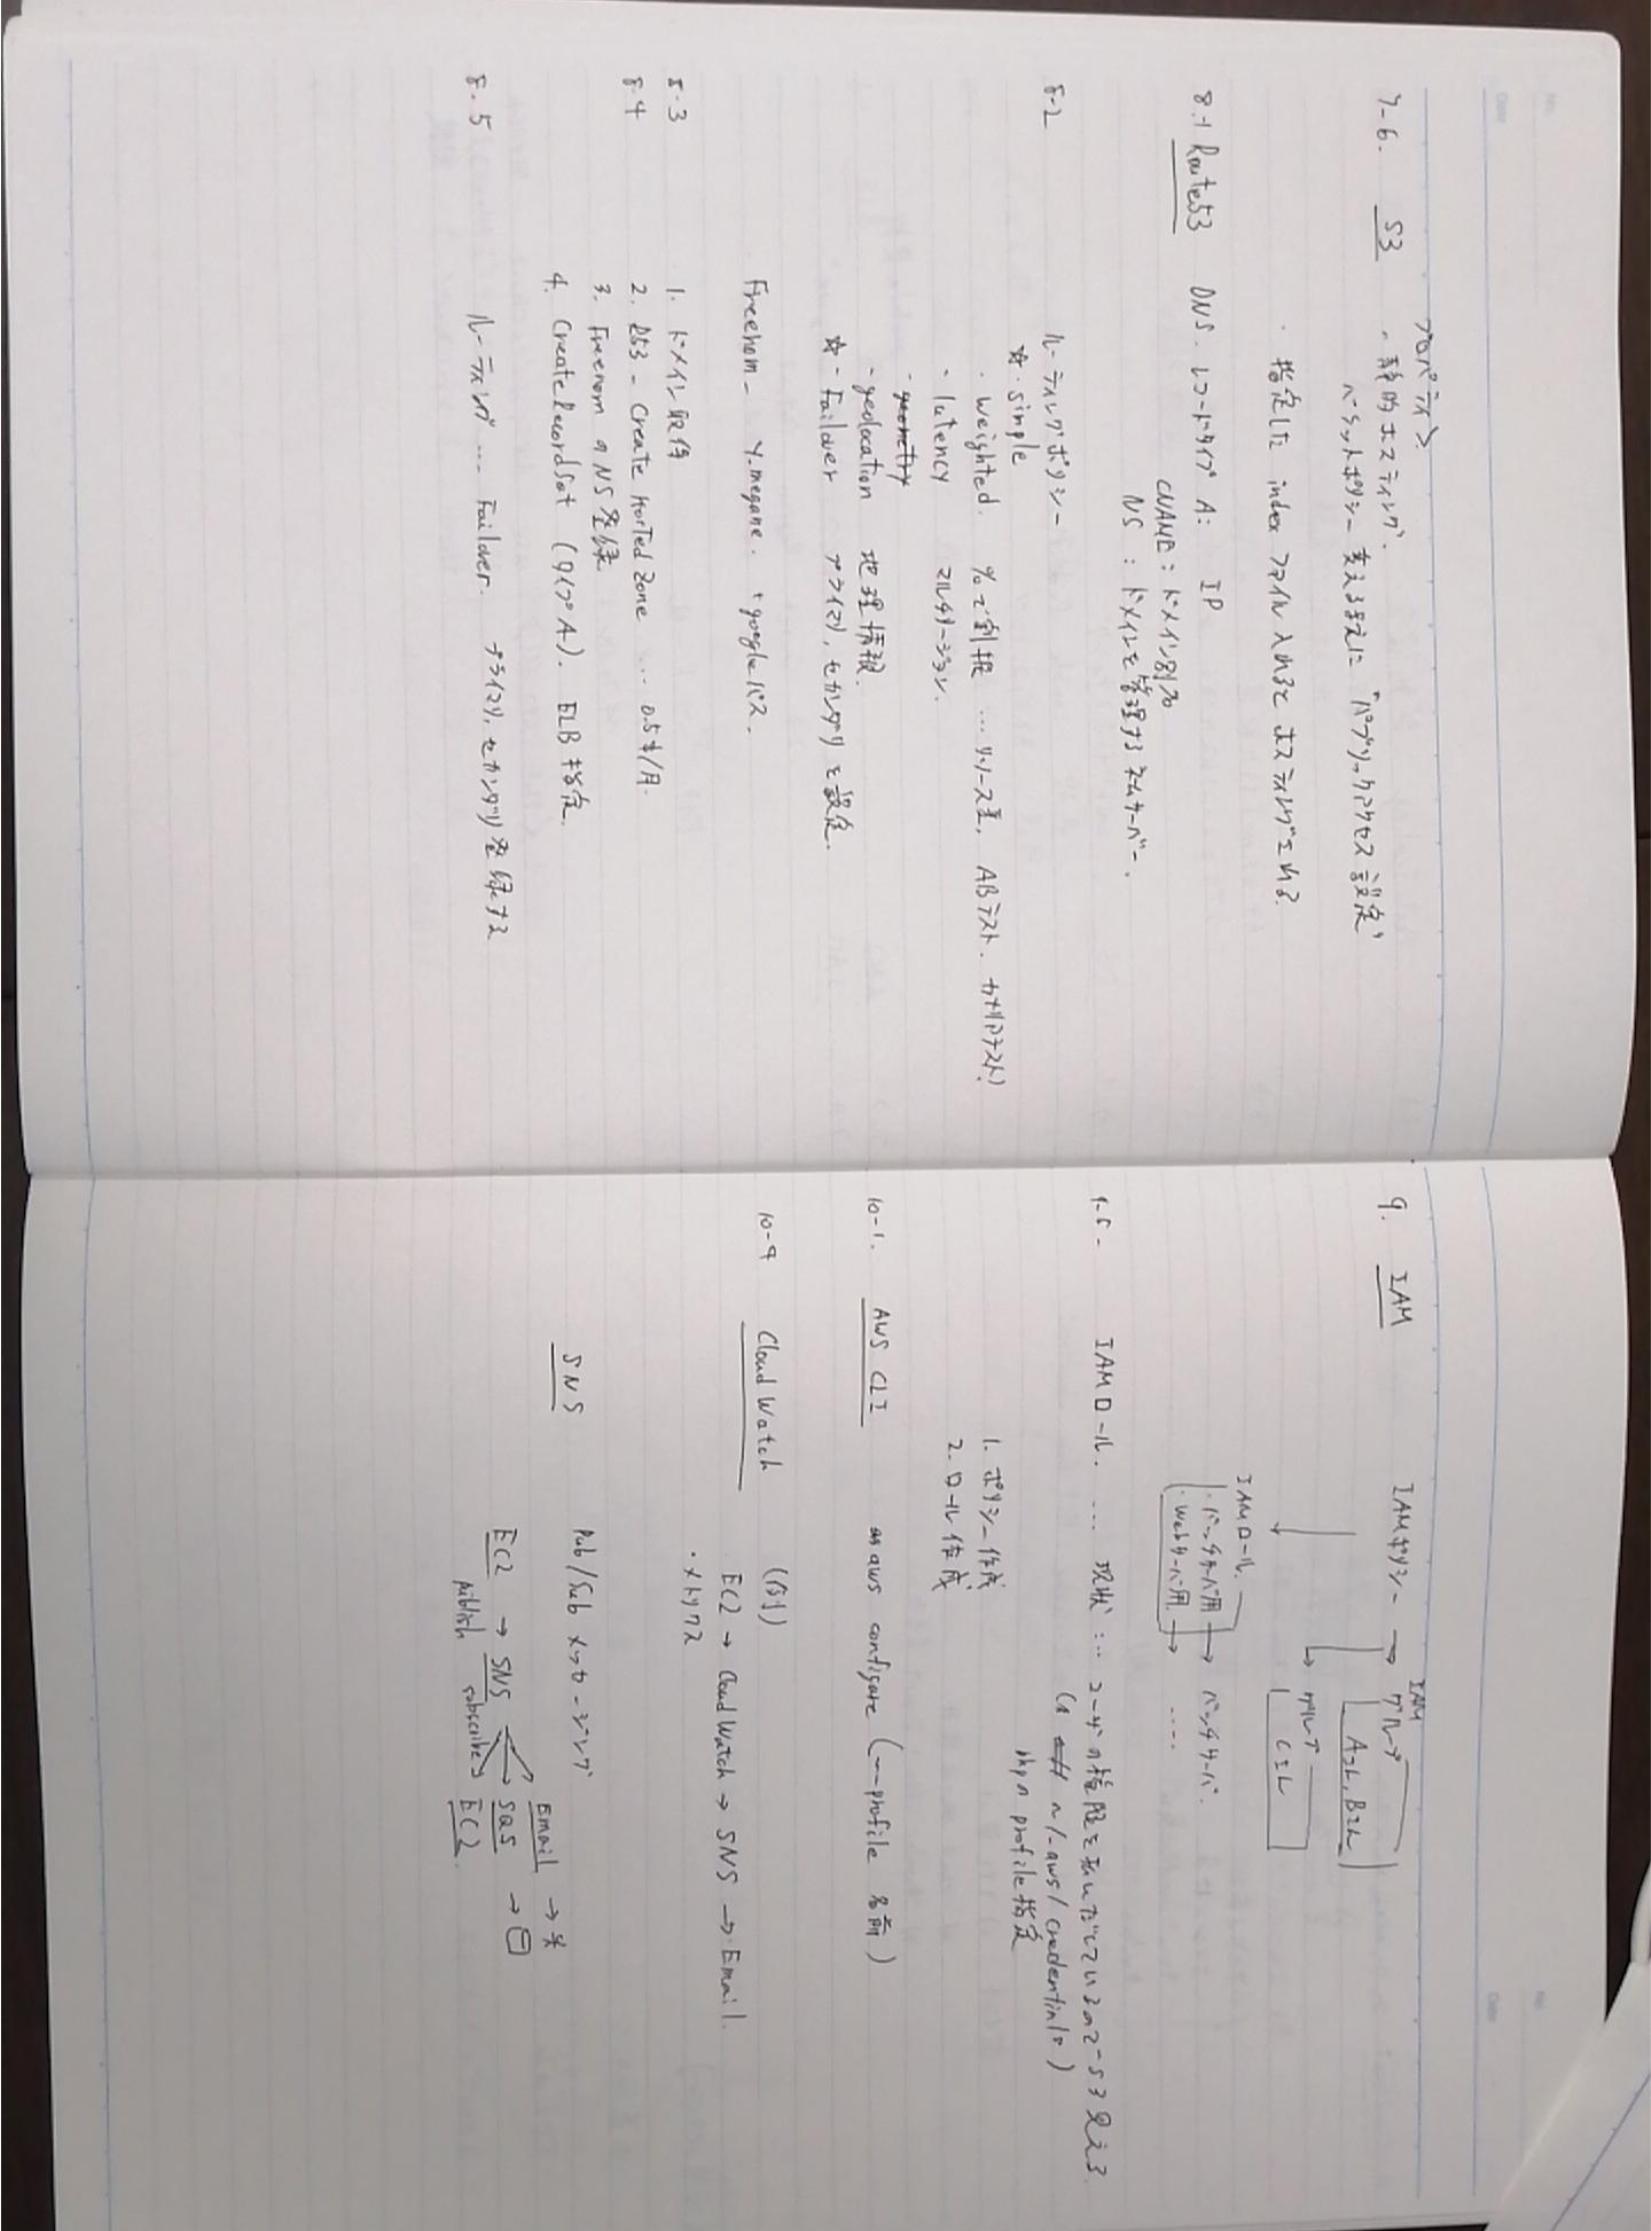 7-6. S3 プロパティ>
・静的ホスティング.
バケットポリシー変えるまえに「パブリックアクセス設定」
・指定した index ファイル入れると ホスティングされる
8.1 Route53 DNS. レコードタイプ A: IP
CNAME: ドメイン別名
NS : ドメインを管理するネームサーバー.
8-2 ルーティングポリシー
☆・simple
・weighted. %で割振 … リソース量, ABテスト.
・latency マルチリージョン.
・geometry
・geolocation 地理情報.
☆・Failover プライマリ, セカンダリを設定.
Freenom - y.megane. +googleパス.
8-3 1. ドメイン取得
8-4 2. R53 - Create Hosted Zone … 0.5$/月.
3. Freenom の NS 登録
4. Create Record Set (タイプA). ELB 指定.
8-5 ルーティング … Failover. プライマリ, セカンダリ登録する
9. IAM IAMポリシー → IAMグループ
Aさん, Bさん
→ グループ
Cさん
IAMロール.
・バッチサーバ用 → バッチサーバ.
・Webサーバ用 → ....
IAMロール. … 現状: … ユーザの権限を ているので S3 見える
~/.aws/credentials)
phpの profile指定
1. ポリシー作成
2. ロール作成
10-1. AWS CLI aws configure (--profile 名前)
10-9 Cloud Watch (例)
EC2 → Cloud Watch → SNS → Email.
・メトリクス
SNS Pub/Sub メッセージング
EC2 → SNS Email →
SQS →
EC2
publish subscribe